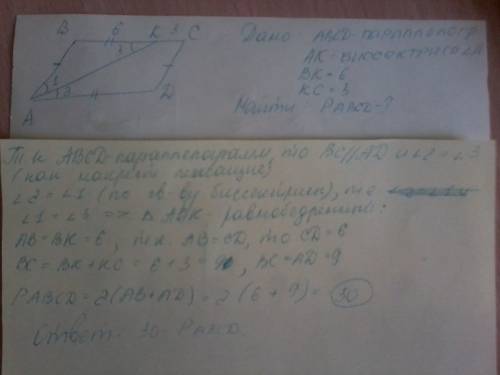 B 6 K 3 C
A D
Дано: ABCD-параллелогр
AK-биссектриса ∠A
BK=6
KC=3
Найти: PABCD-?
Т.к ABCD-параллелограмм, то BC//AD и ∠2=∠3
(как накрест лежащие)
∠2=∠1 (по св-ву биссектрисы), то
∠1=∠3 => Δ ABK- равнобедренный:
AB=BK=6, т.к. AB=CD, то CD=6
BC=BK+KC=6+3=9, BC=AD=9
PABCD=2(AB+AD)=2(6+9)=30
Ответ: 30-PABCD.